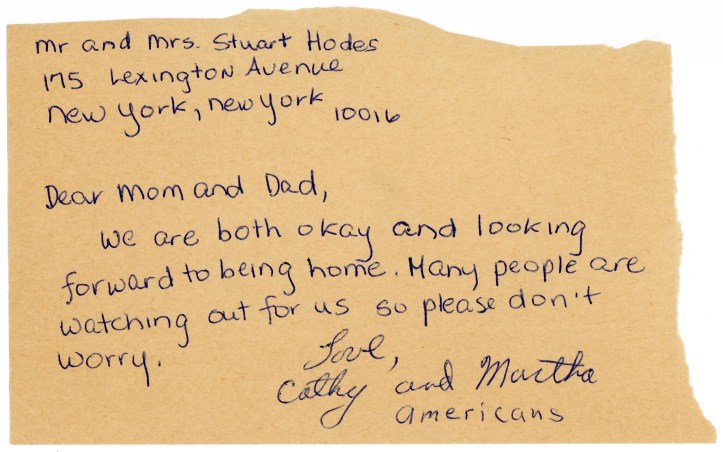 Mr and Mrs. Stuart Hodes
175 Lexington Avenue
New York, New York 10016
Dear Mom and Dad,
We are both okay and looking
forward to being home. Many people are
watching out for us so please don't
worry.
Love,
Cathy and Martha
Americans